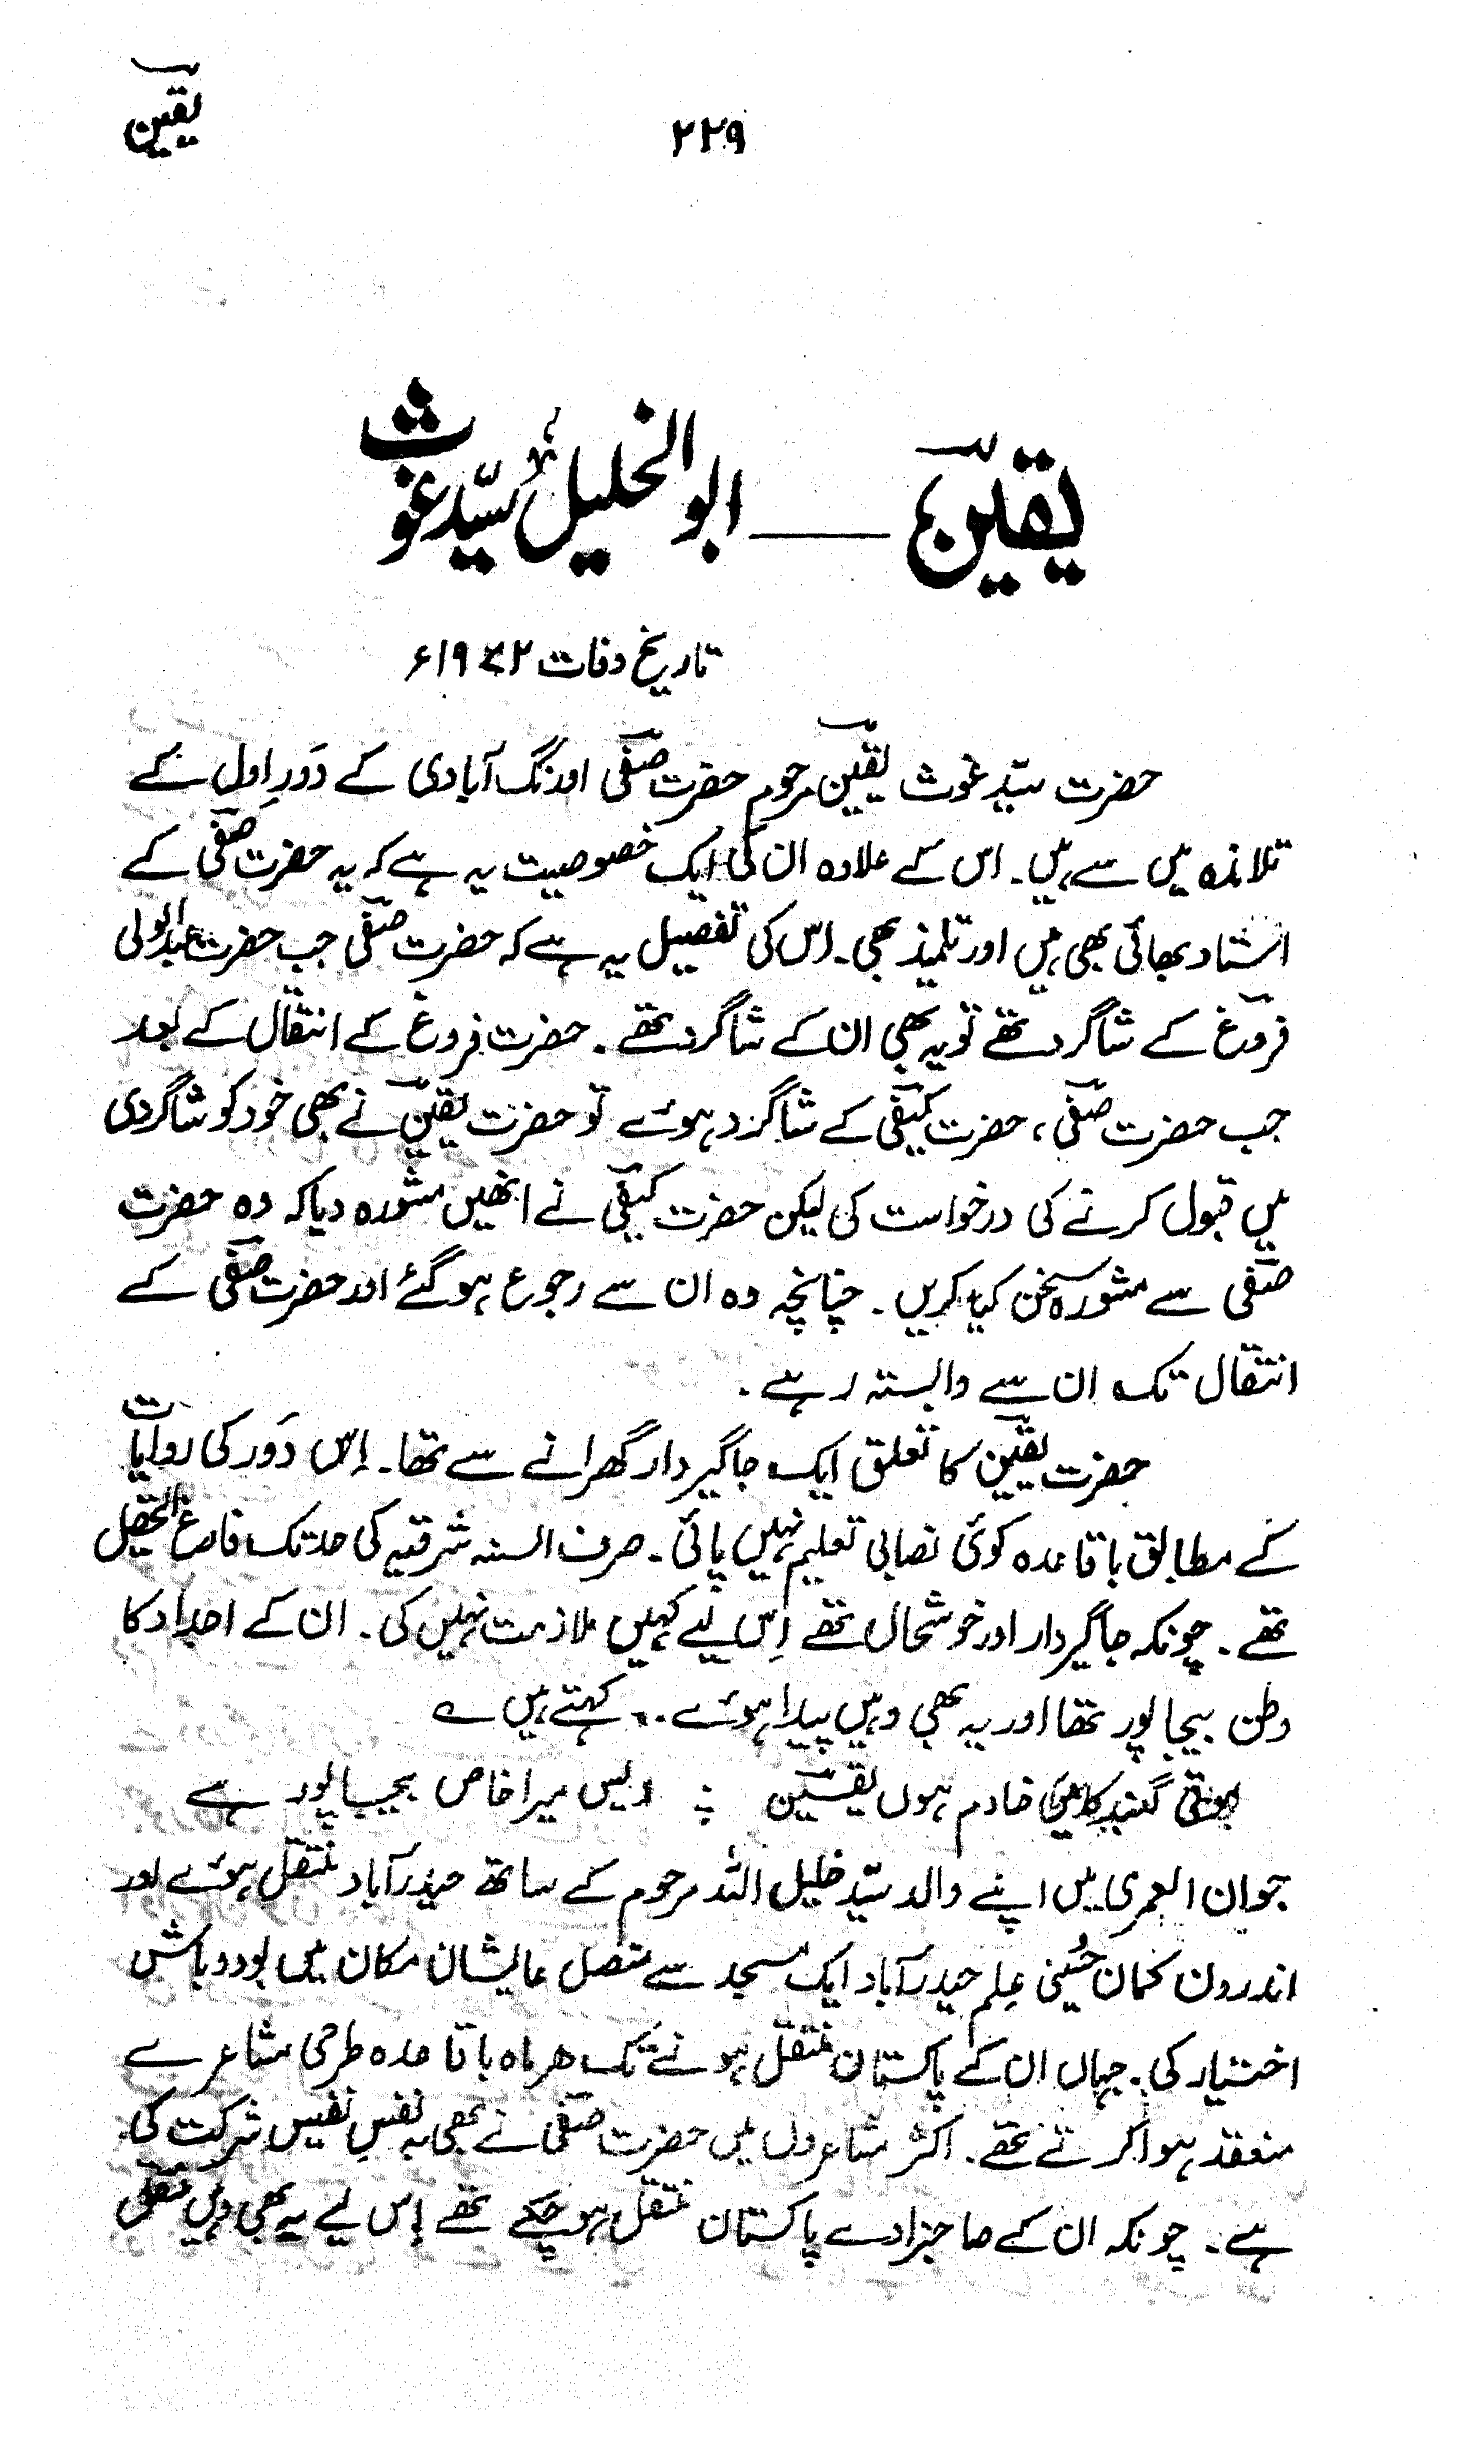 یقین
۲۲۹
یقین — ابوالخلیل سیّد غوث
تاریخ وفات ۱۹۷۲ء
حضرت سیّد غوث یقین مرحوم حضرت صفی اورنگ آبادی کے دَورِ اول کے
تلامذہ میں سے ہیں۔ اس کے علاوہ ان کی ایک خصوصیت یہ ہے کہ یہ حضرت صفی کے
استاد بھائی بھی ہیں اور تلمیذ بھی۔ اس کی تفصیل یہ ہے کہ حضرت صفی جب حضرت عبدالولی
فروغ کے شاگرد تھے تو یہ بھی ان کے شاگرد تھے۔ حضرت فروغ کے انتقال کے بعد
جب حضرت صفی، حضرت کیفی کے شاگرد ہوئے تو حضرت یقین نے بھی خود کو شاگردی
میں قبول کرنے کی درخواست کی لیکن حضرت کیفی نے انھیں مشورہ دیا کہ وہ حضرت
صفی سے مشورہ سخن کیا کریں۔ چنانچہ وہ ان سے رجوع ہوگئے اور حضرت صفی کے
انتقال تک ان سے وابستہ رہے۔
حضرت یقین کا تعلق ایک جاگیردار گھرانے سے تھا۔ اِس دَور کی روایات
کے مطابق باقاعدہ کوئی نصابی تعلیم نہیں پائی۔ صرف السنہ شرقیہ کی حد تک فارغ التحصیل
تھے۔ چونکہ جاگیردار اور خوشحال تھے اِس لیے کہیں ملازمت نہیں کی۔ ان کے اجداد کا
وطن بیجاپور تھا اور یہ بھی وہیں پیدا ہوئے۔ کہتے ہیں ؎
گنبد کا میں خادم ہوں یقین ؛ دیس میرا خاص بیجاپور ہے
جوان العمری میں اپنے والد سیّد خلیل اللہ مرحوم کے ساتھ حیدرآباد منتقل ہوئے اور
اندرون کمان حُسینی عِلم حیدرآباد ایک مسجد سے متصل عالیشان مکان میں بود و باش
اختیار کی۔ جہاں ان کے پاکستان منتقل ہونے تک ہر ماہ باقاعدہ طرحی مشاعرے
منعقد ہوا کرتے تھے۔ اکثر مشاعروں میں حضرت صفی نے بھی بہ نفسِ نفیس شرکت کی
ہے۔ چونکہ ان کے صاجزادے پاکستان منتقل ہوچکے تھے اِس لیے یہ بھی وہیں منتقل